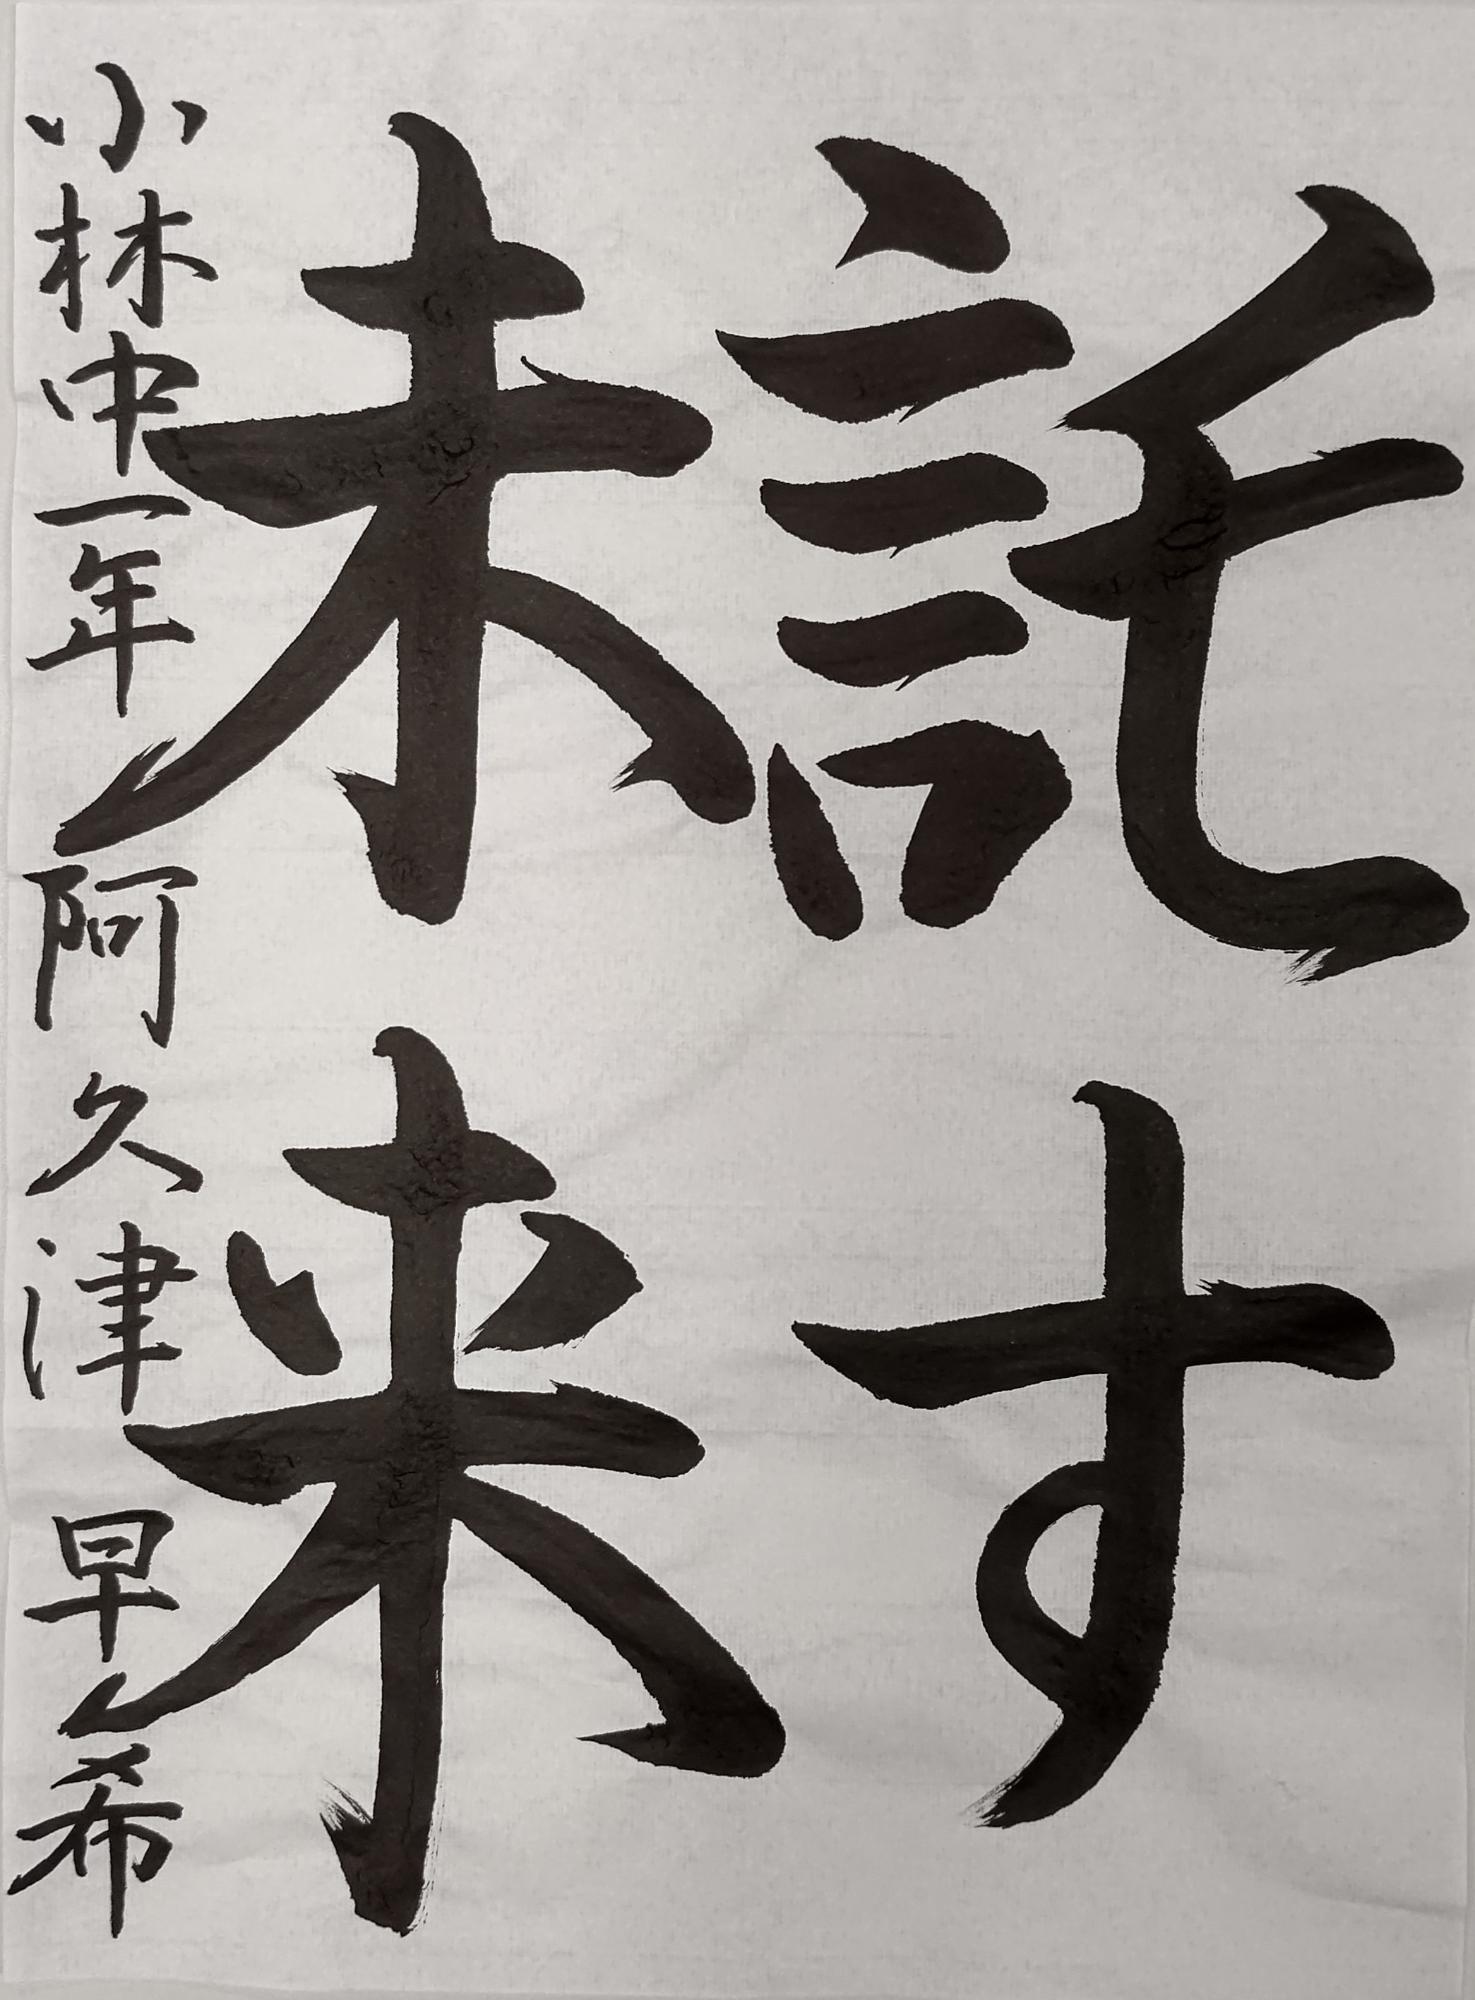 託す
未来
小林中一年 阿久津早希